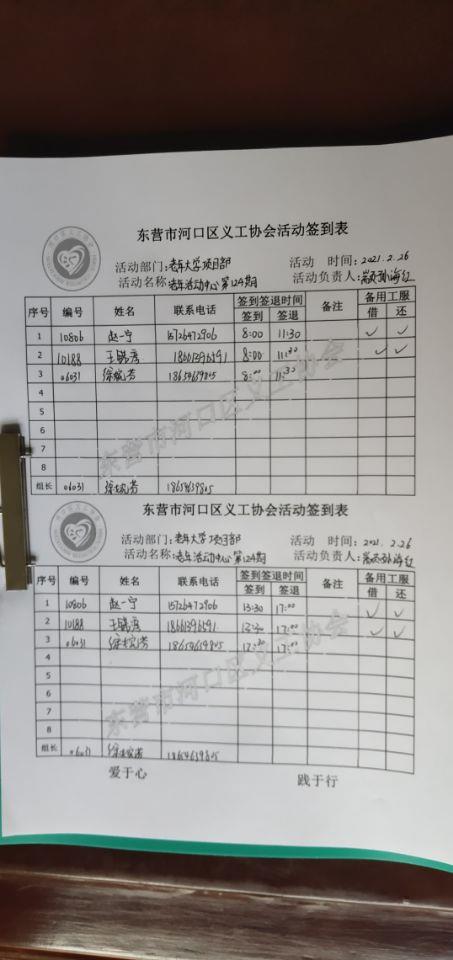 东营市河口区义工协会活动签到表
活动部门：老年大学项目部 活动 时间：2021.2.26
活动名称：老年活动中心第124期 活动负责人：孙海红
序号 编号 姓名 联系电话 签到签退时间 备注 备用工服
签到 签退 借 还
1 10806 赵一宁 15726472906 8:00 11:30 ✓ ✓
2 10188 8:00 11:30 ✓ ✓
3 06031 8:00 11:30
4
5
6
7
8
组长 06031
东营市河口区义工协会
东营市河口区义工协会活动签到表
活动部门：老年大学项目部 活动 时间：2021.2.26
活动名称：老年活动中心第124期 活动负责人：孙海红
序号 编号 姓名 联系电话 签到签退时间 备注 备用工服
签到 签退 借 还
1 10806 赵一宁 15726472906 13:30 17:00 ✓ ✓
2 10188 17:00 ✓ ✓
3 06031 17:00
4
5
6
7
8
组长 06031
东营市河口区义工协会
爱于心 践于行